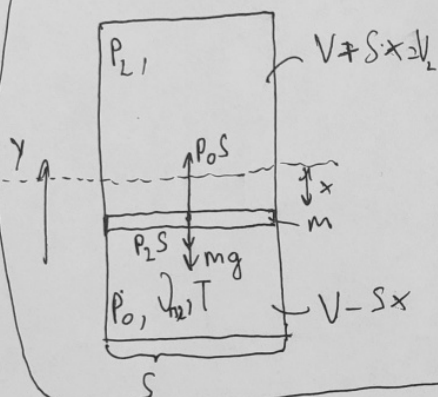 P₂,
V+S·x=V₂
y
P₀S
x
m
P₂S
mg
P₀, T
V-Sx
S